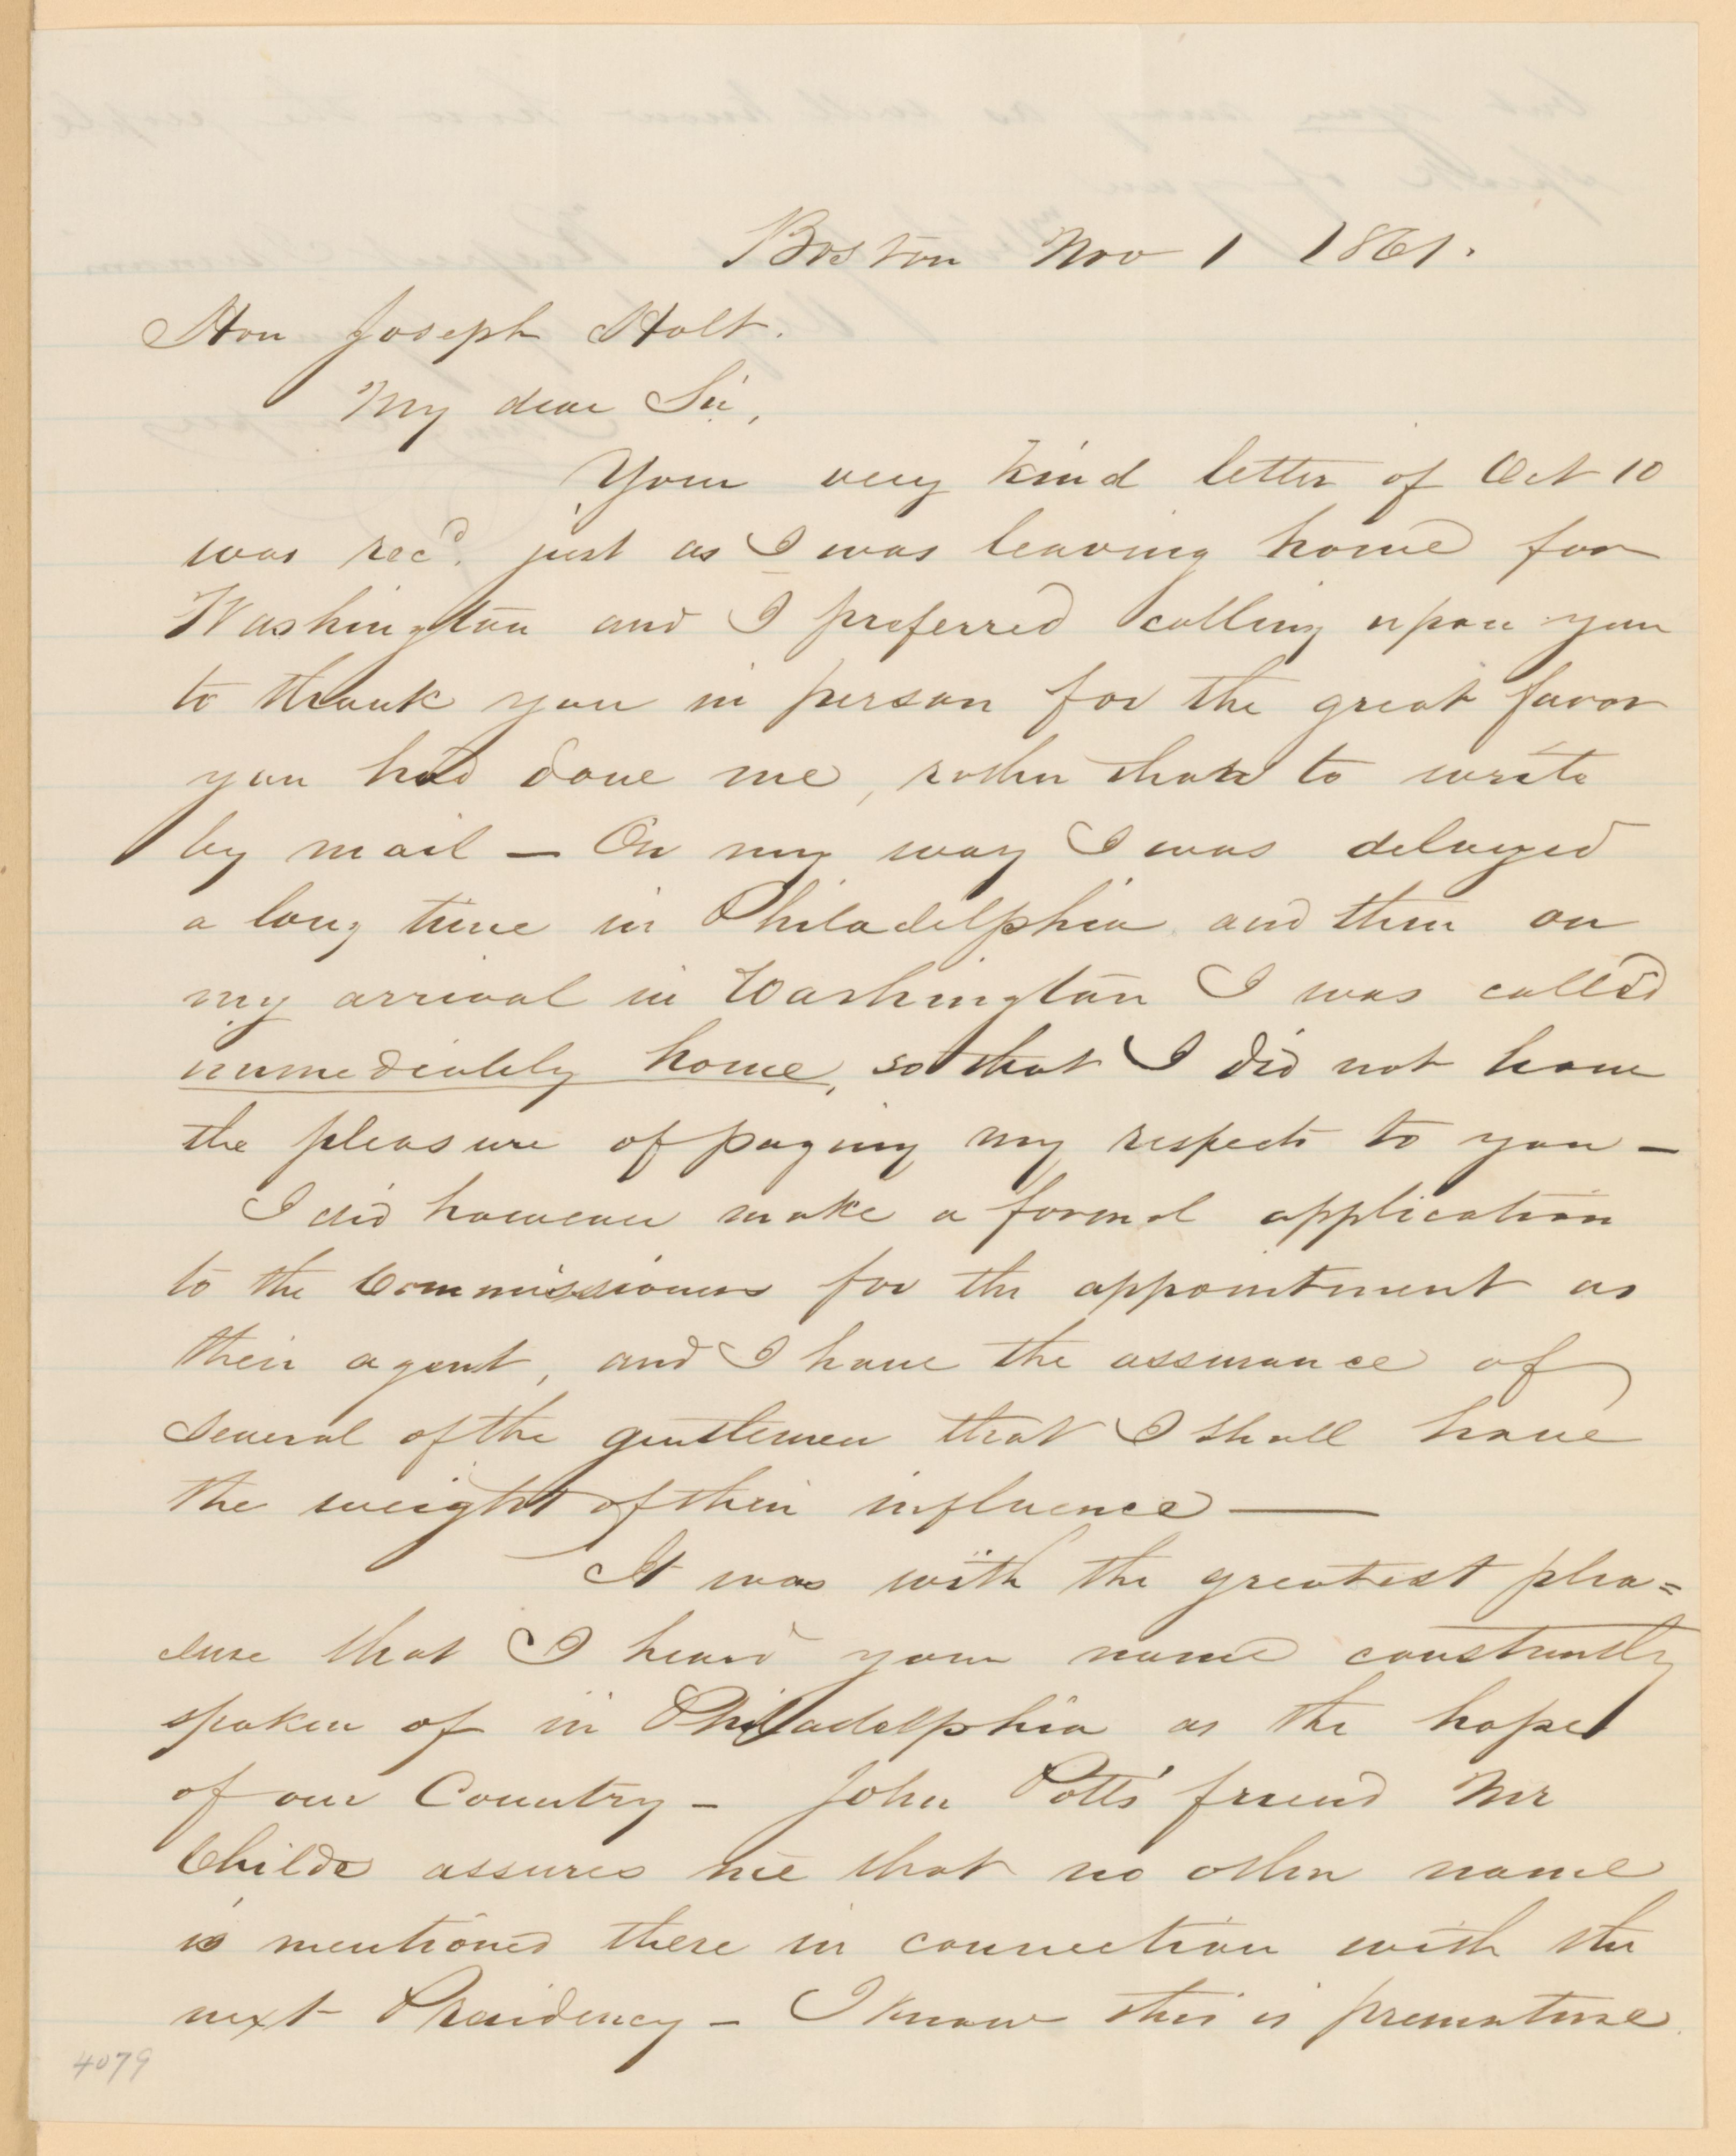 Boston Nov 1 1861.
Hon Joseph Holt.
My dear Sir,
Your very kind letter of Oct 10
was recd. just as I was leaving home for
Washington and I preferred calling upon you
to thank you in person for the great favor
you had done me, rather than to write
by mail — On my way I was delayed
a long time in Philadelphia and then on
my arrival in Washington I was called
immediately home, so that I did not have
the pleasure of paying my respects to you —
I did however make a formal application
to the Commissioners for the appointment as
their agent, and I have the assurance of
several of the gentlemen that I shall have
the weight of their influence —
It was with the greatest plea=
sure that I heard your name constantly
spoken of in Philadelphia as the hope
of our Country — John Potts' friend Mr
Childs assures me that no other name
is mentioned there in connection with the
next Presidency — I know this is premature
4079